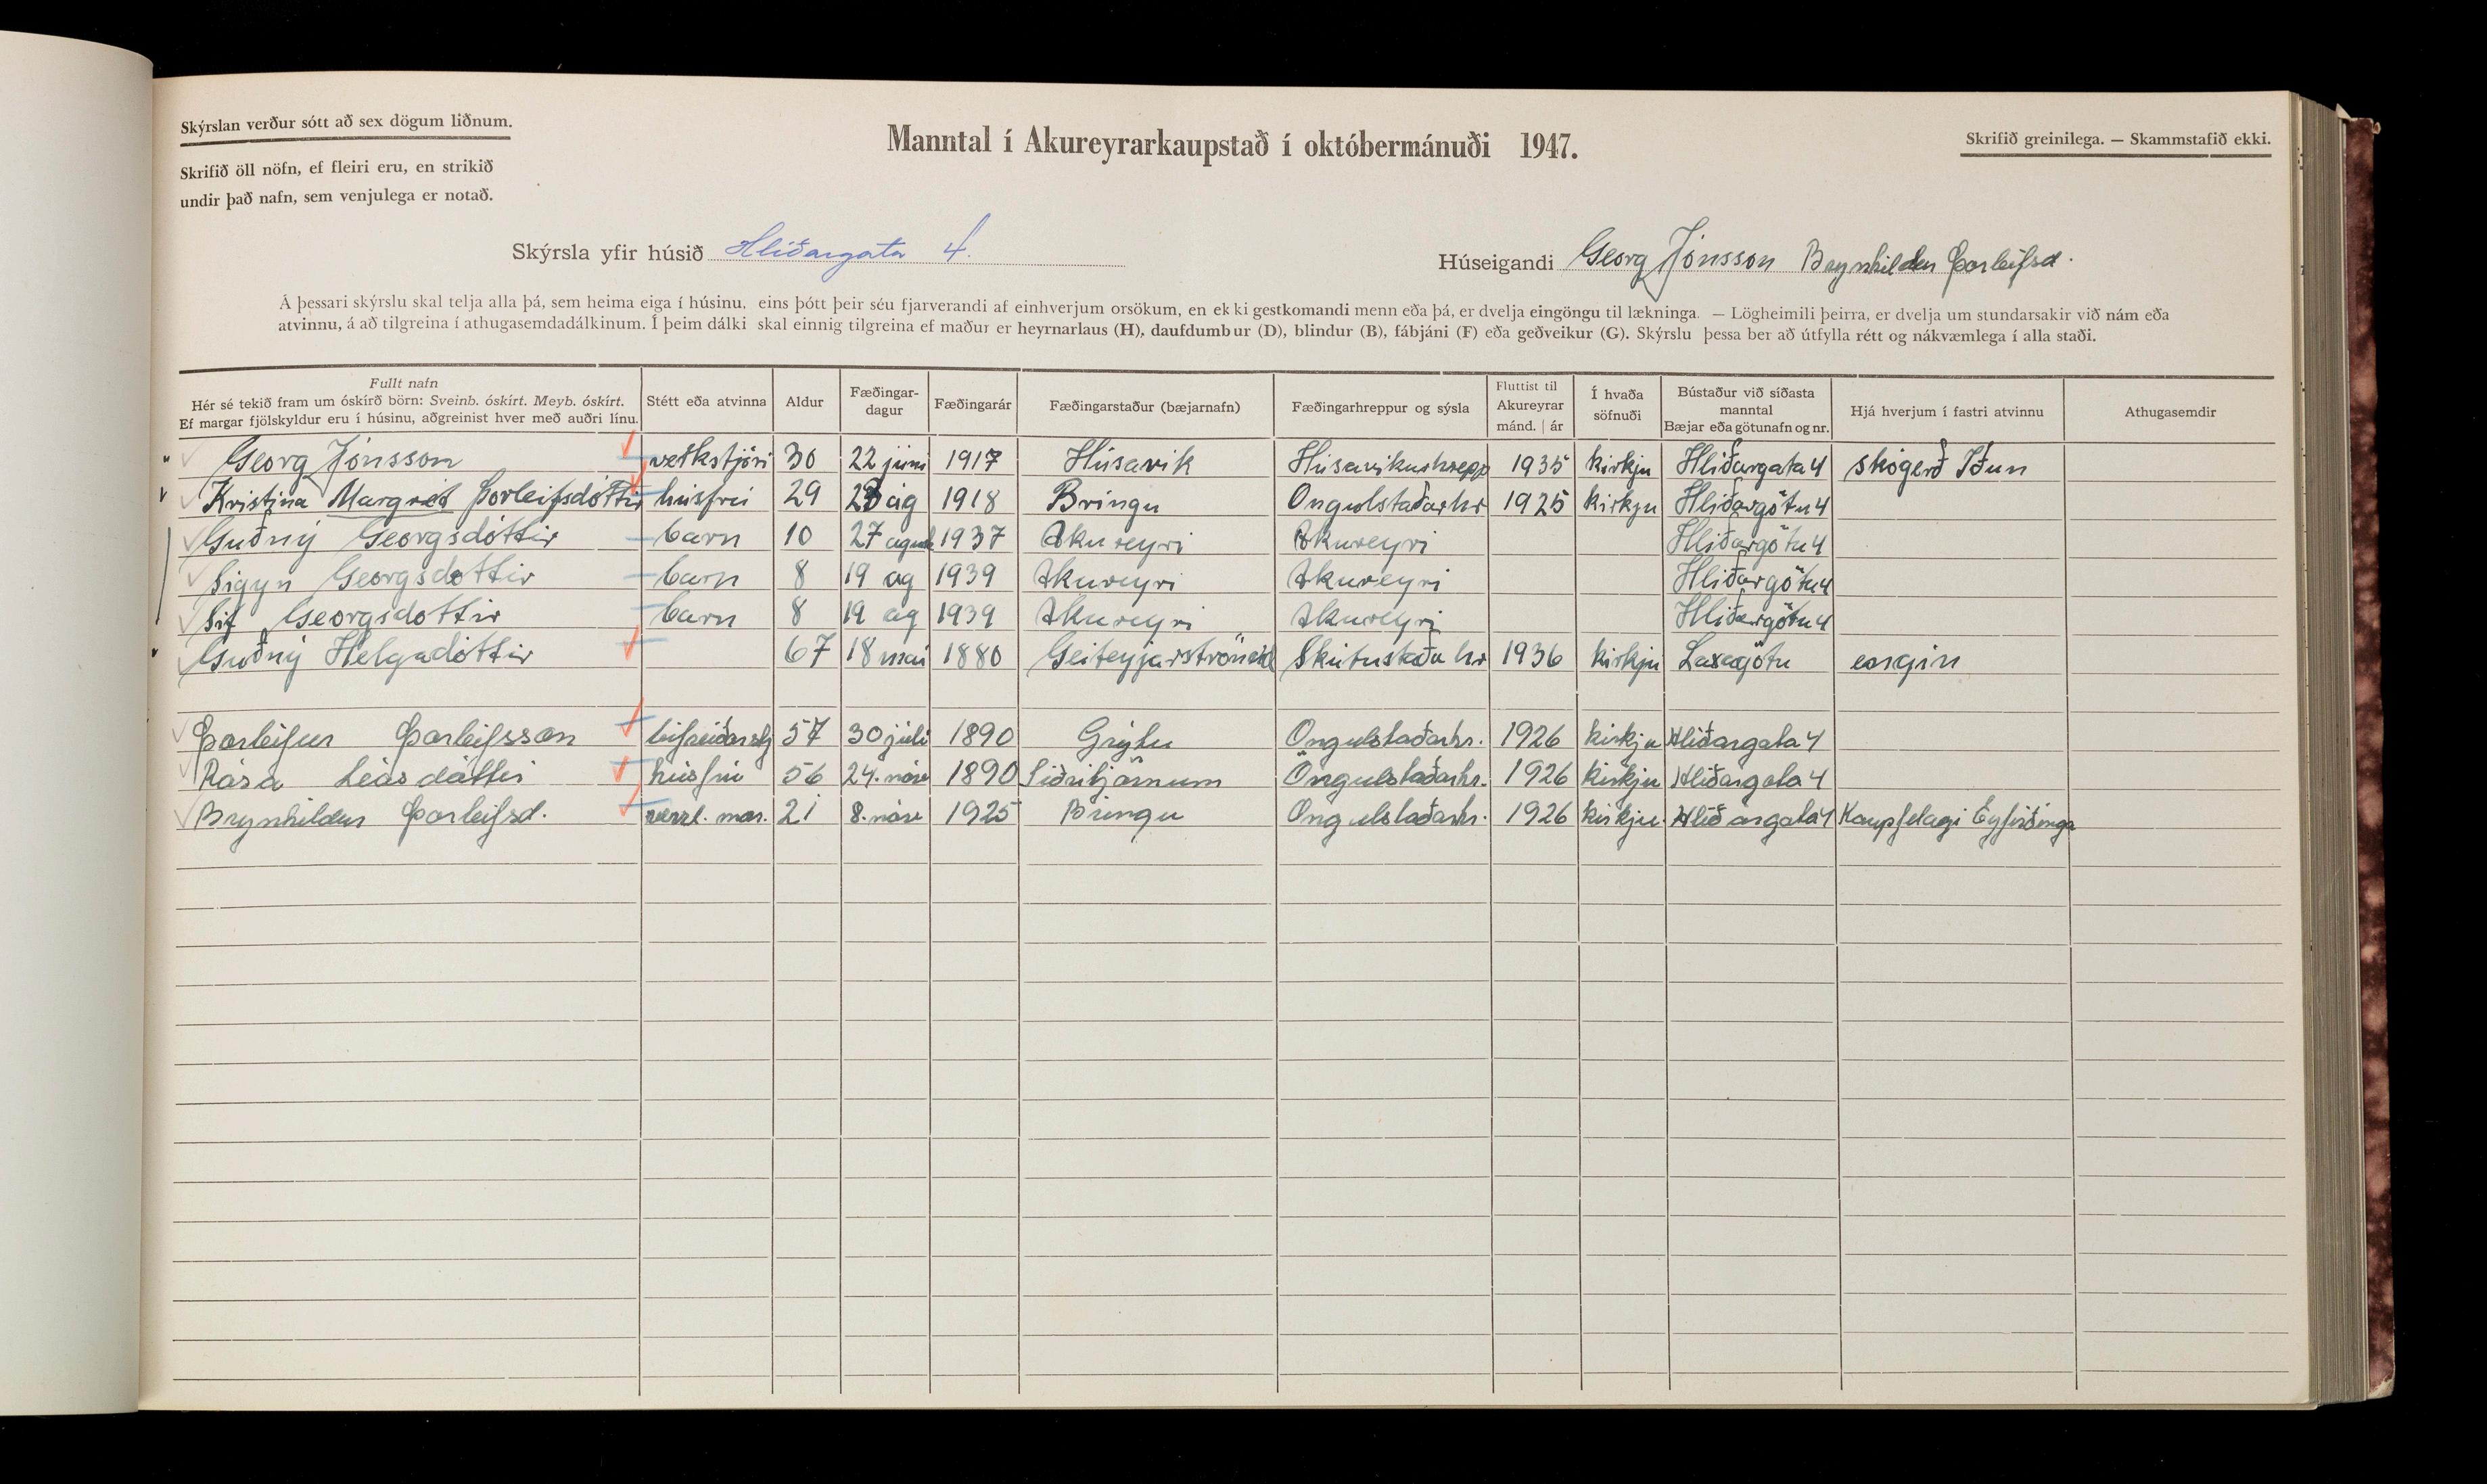 Skýrslan verður sótt að sex dögum liðnum.
Skrifið öll nöfn, ef fleiri eru, en strikið
undir það nafn, sem venjulega er notað.
Manntal í Akureyrarkaupstað í októbermánuði 1947.
Skrifið greinilega. — Skammstafið ekki.
Skýrsla yfir húsið Hlíðargata 4.
Húseigandi Georg Jónsson Brynhildur Þorleifsd.
Á þessari skýrslu skal telja alla þá, sem heima eiga í húsinu, eins þótt þeir séu fjarverandi af einhverjum orsökum, en ekki gestkomandi menn eða þá, er dvelja eingöngu til lækninga. — Lögheimili þeirra, er dvelja um stundarsakir við nám eða
atvinnu, á að tilgreina í athugasemdadálkinum. Í þeim dálki skal einnig tilgreina ef maður er heyrnarlaus (H), daufdumbur (D), blindur (B), fábjáni (F) eða geðveikur (G). Skýrslu þessa ber að útfylla rétt og nákvæmlega í alla staði.
Fullt nafn
Hér sé tekið fram um óskírð börn: Sveinb. óskírt. Meyb. óskírt.
Ef margar fjölskyldur eru í húsinu, aðgreinist hver með auðri línu.
Stétt eða atvinna
Aldur
Fæðingar-
dagur
Fæðingarár
Fæðingarstaður (bæjarnafn)
Fæðingarhreppur og sýsla
Fluttist til
Akureyrar
mánd. | ár
Í hvaða
söfnuði
Bústaður við síðasta
manntal
Bæjar eða götunafn og nr.
Hjá hverjum í fastri atvinnu
Athugasemdir
Georg Jónsson verkstjóri 30 22 júni 1917 Húsavik Húsavikurhrepp 1935 kirkju Hliðargata 4 skógerð Iðun
Kristina Margrét Þorleifsdóttir húsfrú 29 ág 1918 Bringu Ongulstaðarhr 1925 kirkju Hliðargötu 4
Guðný Georgsdóttir barn 10 27 águst 1937 Akureyri Akureyri Hliðargötu 4
Sigyn Georgsdottir barn 8 19 ag 1939 Akureyri Akureyri Hliðargötu 4
Sif Georgsdottir barn 8 19 ag 1939 Akureyri Akureyri Hliðargötu 4
Guðný Helgadóttir 67 18 mai 1880 Skútustaða hr 1936 kirkju Laxagötu engin
Þorleifur Þorleifsson bifreiðarstj 57 30 júli 1890 Grýtu Öngulstaðarhr. 1926 kirkju Hlíðargata 4
Rósa Leósdóttir húsfrú 56 24. nóv 1890 Öngulstaðarhr. 1926 kirkju Hlíðargata 4
Brynhildur Þorleifsd. verzl. mær. 21 8. nóv 1925 Bringu Öngulstaðarhr. 1926 kirkju Hlíðargata 4 Kaupfelagi Eyfirðinga